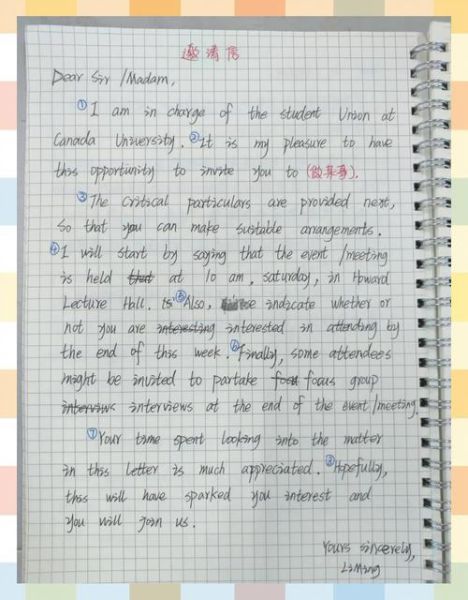 邀请信
Dear Sir / Madam,
① I am in charge of the student Union at
Canada University. ② It is my pleasure to have
this opportunity to invite you to (做某事).
③ The Critical particulars are provided next,
so that you can make suitable arrangements.
④ I will start by saying that the event / meeting
is held that at 10 am, saturday, in Howard
Lecture Hall. ⑤ Also, indicate whether or
not you are interesting interested in attending by
the end of this week. ⑥ Finally, some attendees
might be invited to partake focu focus group
interviws interviews at the end of the event / meeting.
⑦ Your time spent looking into the matter
in this letter is much appreciated. ⑧ Hopefully,
this will have sparked you interest and
you will join us.
Yours sincerely,
Li Ming